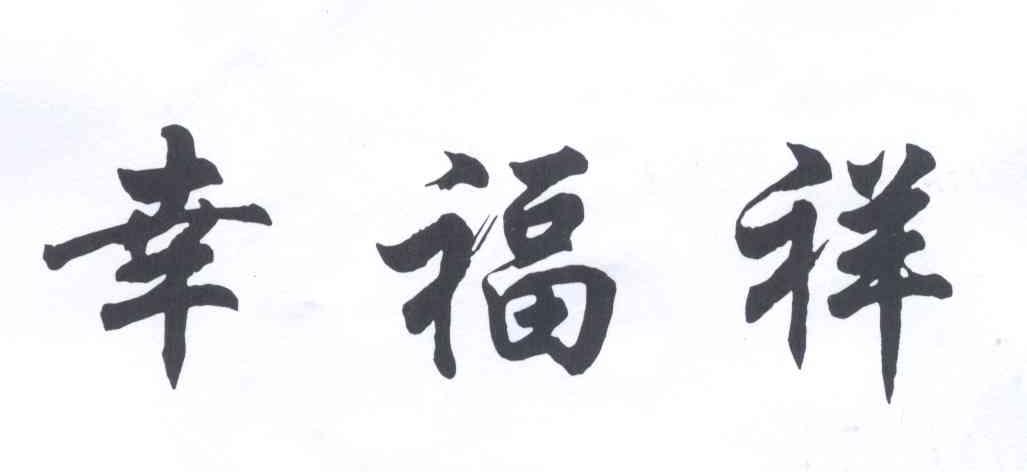 幸福祥